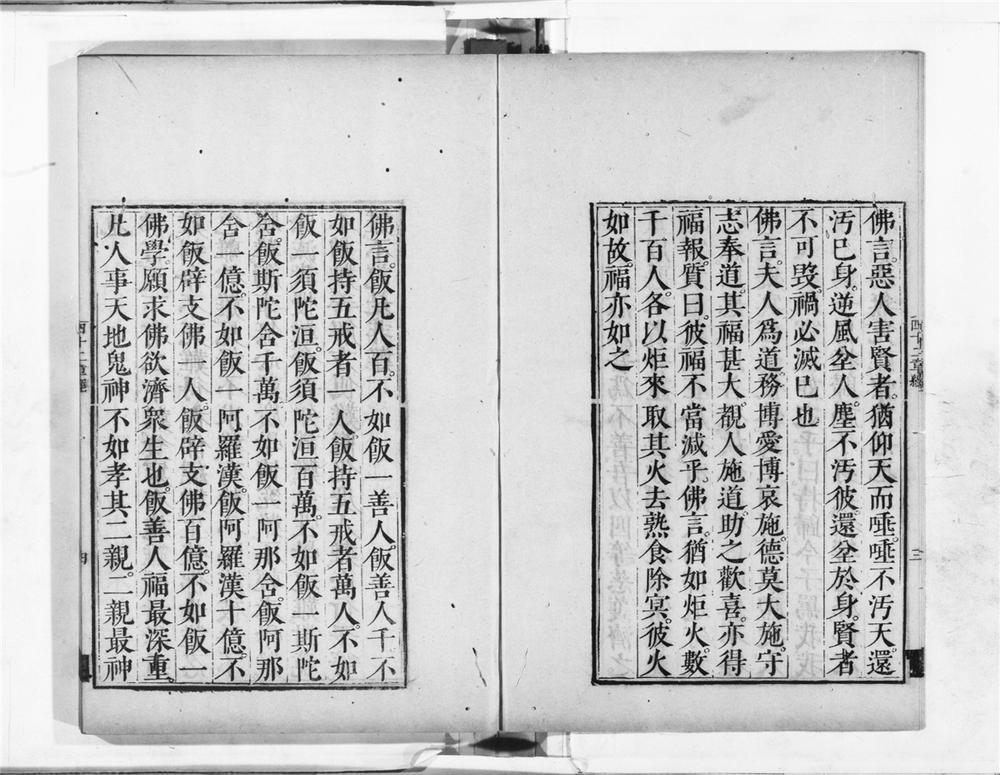 佛言。惡人害賢者。猶仰天而唾。唾不汚天。還
汚己身。逆風坌人。塵不汚彼。還坌於身。賢者
不可毀。禍必滅己也
佛言。夫人爲道務博愛博哀施。德莫大施。守
志奉道。其福甚大。覩人施道。助之歡喜。亦得
福報。質曰。彼福不當減乎。佛言。猶如炬火。數
千百人。各以炬來取其火去。熟食除冥。彼火
如故。福亦如之
四十二章經
三
佛言。飯凡人百。不如飯一善人。飯善人千。不
如飯持五戒者一人。飯持五戒者萬人。不如
飯一須陀洹。飯須陀洹百萬。不如飯一斯陀
含。飯斯陀含千萬。不如飯一阿那含。飯阿那
含一億。不如飯一阿羅漢。飯阿羅漢十億。不
如飯辟支佛一人。飯辟支佛百億。不如飯一
佛學願求佛欲濟衆生也。飯善人福最深重。
凡人事天地鬼神。不如孝其二親。二親最神